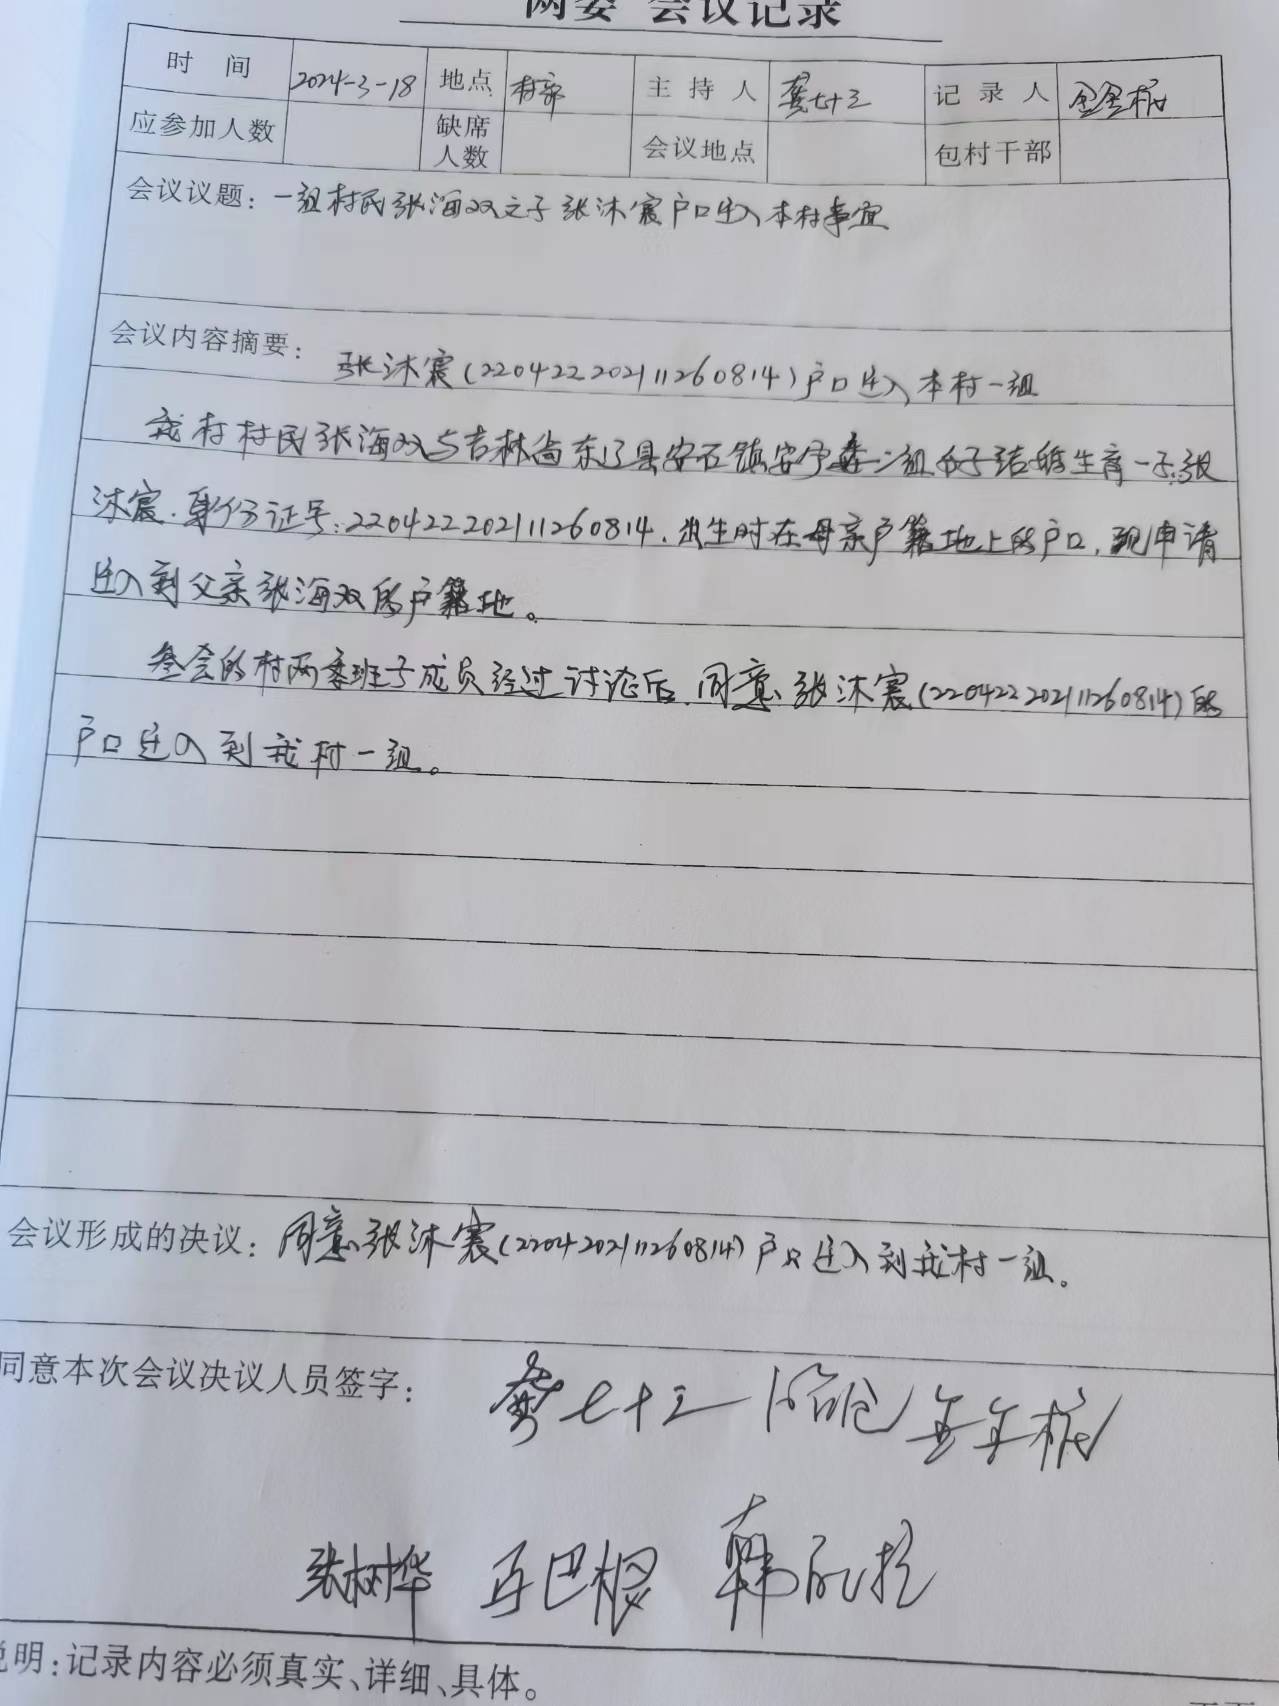 两委 会议记录
时间 2024-3-18 地点 村部 主持人 龚七十三 记录人
应参加人数 缺席人数 会议地点 包村干部
会议议题：一组村民张海双之子张沐宸户口迁入本村事宜
会议内容摘要：
张沐宸(220422202111260814)户口迁入本村一组
我村村民张海双与吉林省东辽县安石镇安宁 二组 结婚生育一子张
沐宸.身份证号:220422202111260814.出生时在母亲户籍地上的户口,现申请
迁入到父亲张海双的户籍地。
参会的村两委班子成员经过讨论后.同意张沐宸(220422202111260814)的
户口迁入到我村一组。
会议形成的决议：同意张沐宸(2204202111260814)户口迁入到我村一组。
同意本次会议决议人员签字： 龚七十三
张树华
说明:记录内容必须真实、详细、具体。